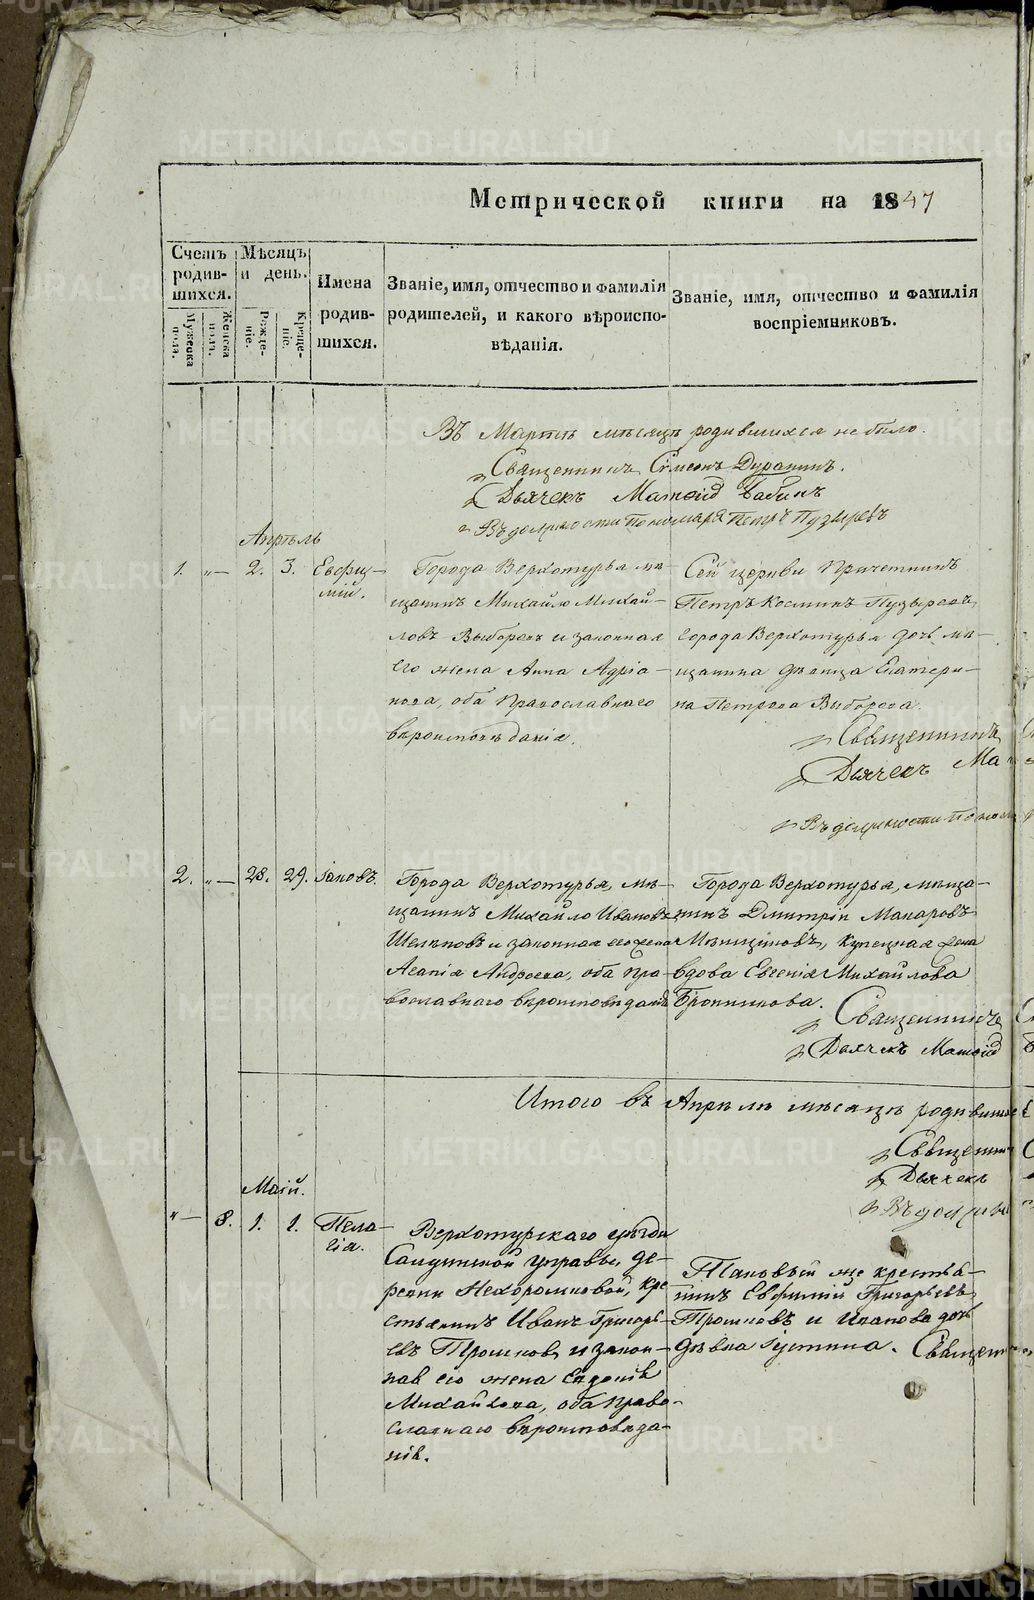 METRIKI.GASO-URAL.RU
Метрической книги на 1847
Счетъ родив-шихся.
Мужеска пола.
Женска пола.
Мѣсяцъ и день.
Рожде-ніе.
Креще-ніе.
Имена родив-шихся.
Званіе, имя, отчество и фамилія родителей, и какого вѣроиспо-вѣданія.
Званіе, имя, отчество и фамилія воспріемниковъ.
Въ Мартѣ мѣсяцѣ родившихся не было.
Священникъ Симеонъ
Дьячекъ Матвій Бабинъ
Въ должности Пономаря Петръ Пузыревъ
Апрѣль
1. „— 2. 3. Евѳи-
мій.
Города Верхотурья мѣ-
щанинъ Михайло Михай-
ловъ Выборовъ и законная
его жена Анна Адріа-
нова, оба Православнаго
вѣроисповѣданія.
Сей церкви Причетникъ
Петръ Косминъ Пузыревъ,
города Верхотурья дочь мѣ-
щанина дѣвица Екатери-
на Петрова Выборова.
Священникъ
Дьячекъ Ма
Въ должности Поном
2. „— 28. 29. Іаковъ.
Города Верхотурья, мѣ-
щанинъ Михайло Ивановъ
Шелѣповъ и законная его жена
Агапія Андреева, оба пра-
вославнаго вѣроисповѣданія
Города Верхотурья, мѣща-
нинъ Дмитрій Макаровъ
купецкая жена
вдова Евгенія Михайлова
Бронникова.
Священникъ
Дьячекъ Матвій
Итого въ Апрѣлѣ мѣсяцѣ родивших
Священни
Дьячекъ
Въ должно
Маій.
„— 8. 1. 1. Пела-
гія.
Верхотурскаго уѣзда
Салдинской управы, де-
ревни Нехорошковой, кре-
стьянинъ Иванъ Григорь-
евъ Трошковъ и закон-
ная его жена Евдокія
Михайлова, оба право-
славнаго вѣроисповѣда-
нія.
Таковый же крестья-
нинъ Евфимій Григорьевъ
Трошковъ и Иванова дочь
дѣвка Іустина. Священ